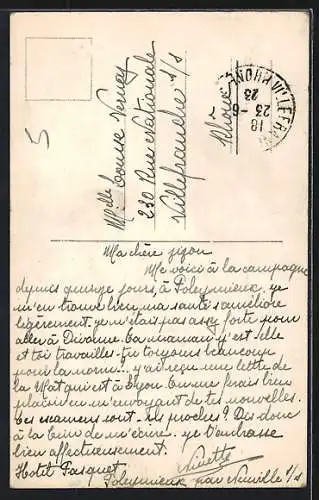 5
Mlle Louise Vernay
230 Rue Nationale
Villefranche s/s
Rhône
VILLEFRANCHE RHONE
18
23-6
23
Ma chère zizou
Me voici à la campagne
depuis quinze jours, à Poleymieux. je
m'en trouve bien ma santé s'améliore
légèrement. je n'étais pas assez forte pour
aller à Divonne. Ta maman y est-elle
et toi travailles-tu toujours beaucoup
pour la norma... j'ai reçu une lettre de
la Mat qui est à Lyon. tu me ferais bien
plaisir en m'envoyant de tes nouvelles.
Les examens sont-ils proches? Dis donc
à la de m'écrire. je t'embrasse
bien affectueusement.
Ninette
Hotel Pasquet
Poleymieux par Neuville s/s